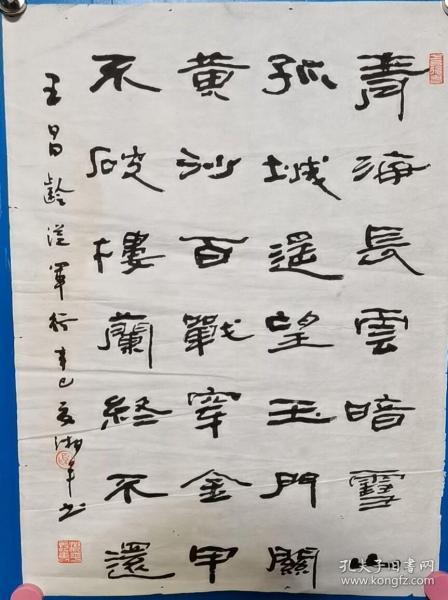 青海長雲暗雪山
孤城遥望玉門關
黄沙百戰穿金甲
不破樓蘭終不還
王昌齡從軍行 辛巳夏湘书
孔夫子旧书网